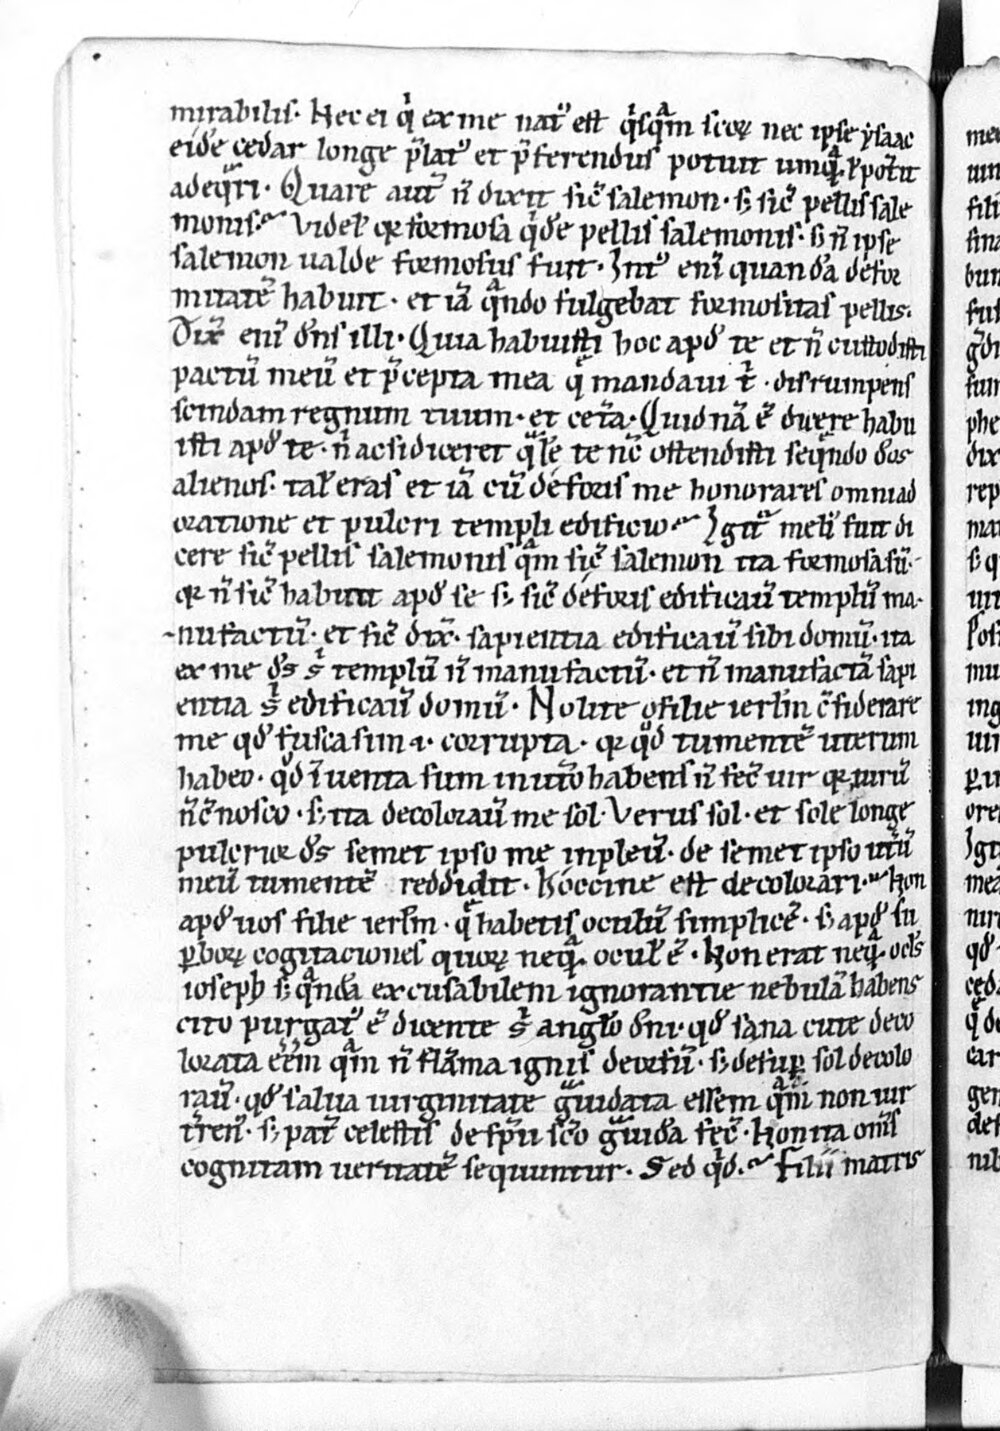 mirabilis. Nec ei qͥ ex me natꝰ est qͥsqᷓm scoꝝ nec ipse ysaac
eidē cedar longe p̄latꝰ et p̄ferendus potuit umqᷓ. ł pot̄it
adeqᷓri. Quare aut̄ n̄ dixit sic̄ salemon. sꝫ sic̄ pellis sale
monis. Videlꝫ qr formosa qͥdē pellis salemonis. sꝫ n̄ ipse
salemon ualde formosus fuit. Intꝰ eni᷑ quandā defor
mitatē habuit. et iā qᷓndo fulgebat formositas pellis.
Dix̄ eni᷑ dn̄s illi. Quia habuisti hoc apd̄ te et n̄ custodisti
pactū meū et p̄cepta mea q̄ mandaui tͥ. disrumpens
scindam regnum tuum. et cet̄a. Quid nā ē dicere habu
isti apd̄ te. n̄ ac si diceret qᷓlē te nc̄ ostendisti seq̄ndo d̄os
alienos. talꝰ eras et iā cū deforis me honorares omni ad
oratione et pulcri templi edificio. Igit᷑ meliꝰ fuit di
cere sic̄ pellis salemonis qᷓm sic̄ salemon ita formosa sū.
qr n̄ sic̄ habuit apd̄ se sꝫ sic̄ deforis edificauᷓ templū ma-
nufactū. et sic̄ dix̄. sapientia edificauᷓ sibi domū. ita
ex me d̄s sͥ templū n̄ manufactū. et n̄ manufactā sapi
entia sͥ edificauᷓ domū. Nolite o filie ierl̄m c̄siderare
me qd̄ fusca sim .i. corrupta. qr qd̄ tumentē uterum
habeo. qd̄ īuenta sum in ut̄o habens n̄ fec̄ uir qr uirū
n̄ c̄nosco. sꝫ ita decolorauᷓ me sol. Verus sol. et sole longe
pulcrior d̄s semet ipso me inpleuᷓ. de semet ipso ut̄ū
meū tumentē reddidit. Hoccine est decolorari. Non
apd̄ uos filie ierl̄m. q̄ habetis oculū simplicē. sꝫ apd̄ su
ꝑboꝝ cogitaciones quoꝝ neqᷓ. oculꝰ ē. Non erat neqᷓ. ocl̄s
ioseph sꝫ qᷓndā excusabilem ignorantie nebulā habens
cito purgatꝰ ē dicente sͥ anglo dn̄i. qd̄ sana cute deco
lorata eēm qᷓm n̄ flāma ignis decoxū. sꝫ desuꝑ sol decolo
rauᷓ. qd̄ salua uirginitate gᷓuidata essem qᷓm non uir
t̄renꝰ. sꝫ pat̄ celestis de sp̄u sc̄o gᷓuidā fec̄. Non ita om̄s
cognitam ueritatē sequuntur. Sed qͥd. Filii matris